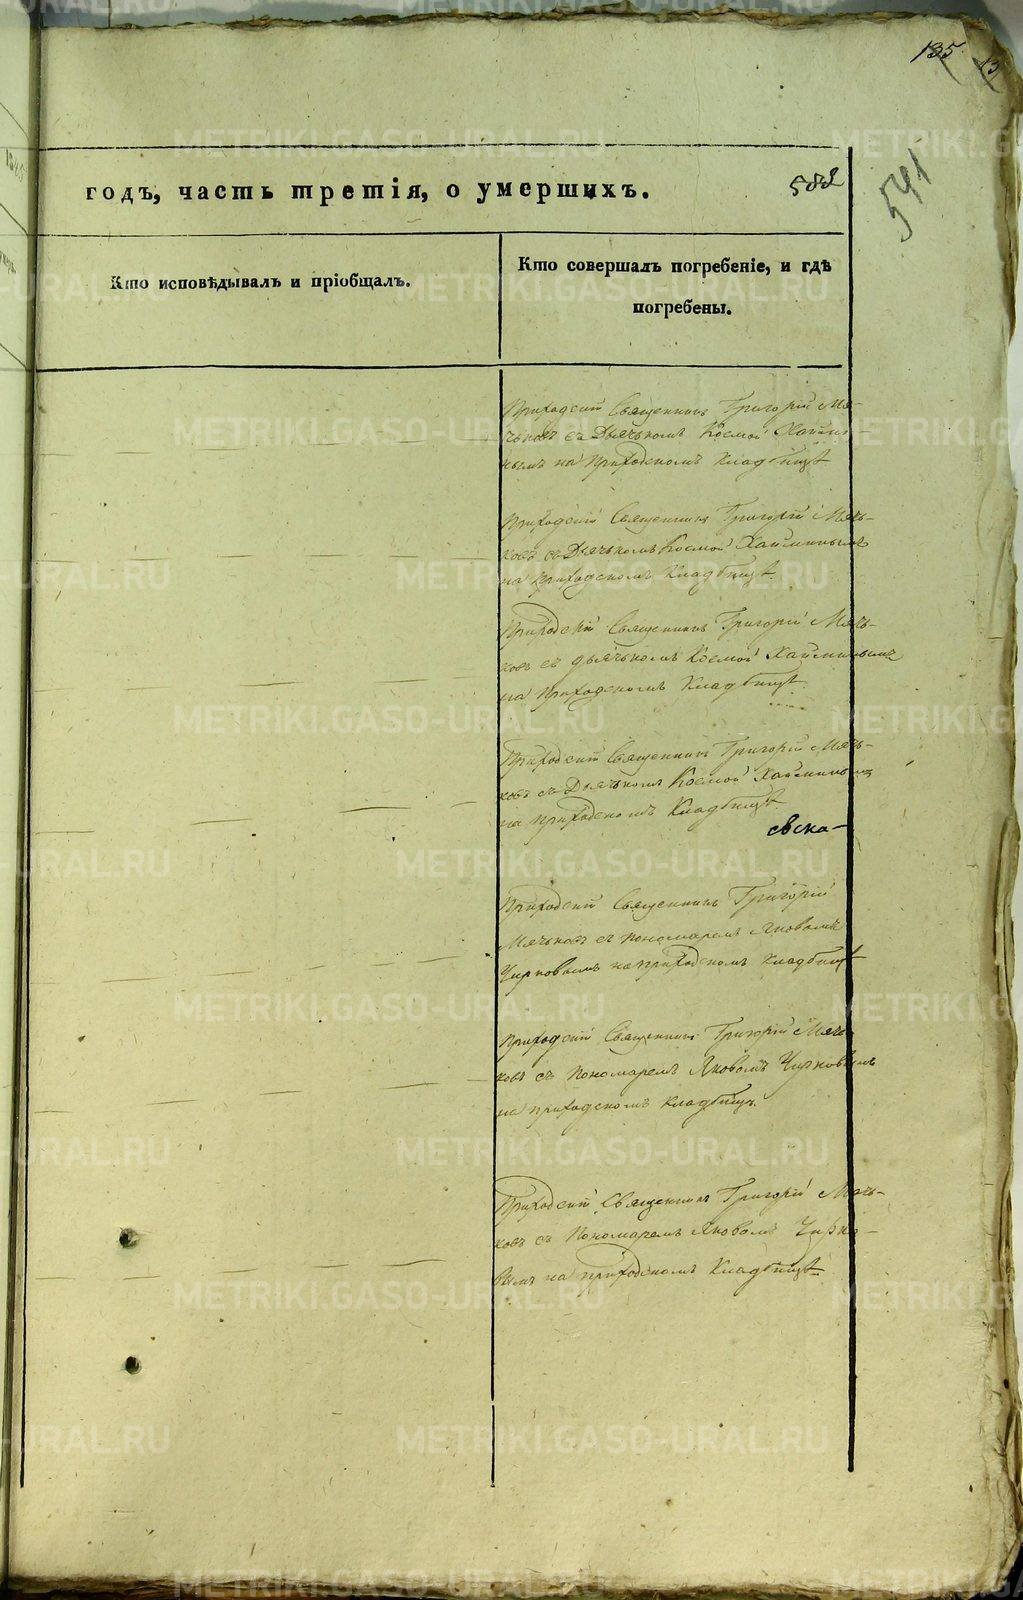 135
13
591
годъ, часть третія, о умершихъ.
588
Кто исповѣдывалъ и пріобщалъ.
Кто совершалъ погребеніе, и гдѣ
погребены.
Приходскій Священникъ Григорій Мя-
чьковъ съ Дьячькомъ Космой Хайми-
нымъ на Приходскомъ Кладбищѣ
Приходскій Священникъ Григорій Мячь-
ковъ съ Дьячькомъ Космой Хайминымъ
на Приходскомъ Кладбищѣ.
Приходскій Священникъ Григорій Мячь-
ковъ съ дьячькомъ Космой Хайминымъ
на Приходскомъ Кладбищѣ.
Приходскій Священникъ Григорій Мячь-
ковъ съ Дьячькомъ Космой Хайминымъ
на Приходскомъ Кладбищѣ
евска-
Приходскій Священникъ Григорій
Мячьковъ съ пономаремъ Яковомъ
Чирковымъ на приходскомъ кладбищѣ
Приходскій Священникъ Григорій Мячь-
ковъ съ Пономаремъ Яковомъ Чирковымъ
на приходскомъ кладбищѣ.
Приходскій Священникъ Григорій Мячь-
ковъ съ Пономаремъ Яковомъ Чирко-
вымъ на приходскомъ Кладбищѣ.
METRIKI.GASO-URAL.RU